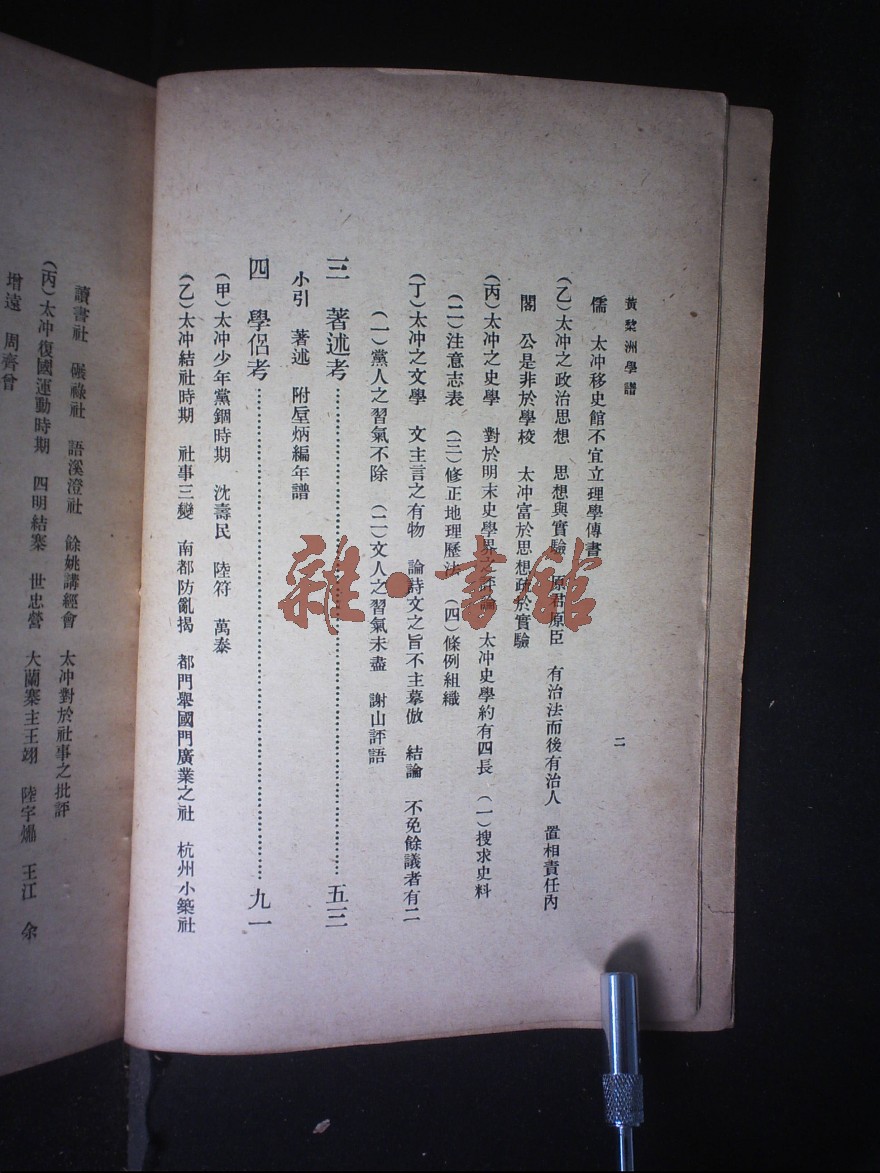 黃棃洲學譜
二
儒　太冲移史館不宜立理學傳書
(乙)太冲之政治思想　思想與實驗　原君原臣　有治法而後有治人　置相責任內
閣　公是非於學校　太冲富於思想疏於實驗
(丙)太冲之史學　對於明末史學界之評論　太冲史學約有四長　(一)搜求史料
(二)注意志表　(三)修正地理歷法　(四)條例組織
(丁)太冲之文學　文主言之有物　論詩文之旨不主摹倣　結論　不免餘議者有二
(一)黨人之習氣不除　(二)文人之習氣未盡　謝山評語
三　著述考……五三
小引　著述　附垕炳編年譜
四　學侶考……九一
(甲)太冲少年黨錮時期　沈壽民　陸符　萬泰
(乙)太冲結社時期　社事三變　南都防亂揭　都門舉國門廣業之社　杭州小築社
讀書社　碾祿社　語溪澄社　餘姚講經會　太冲對於社事之批評
(丙)太冲復國運動時期　四明結寨　世忠營　大蘭寨主王翊　陸宇　王江　余
增遠　周齊曾
雜·書館